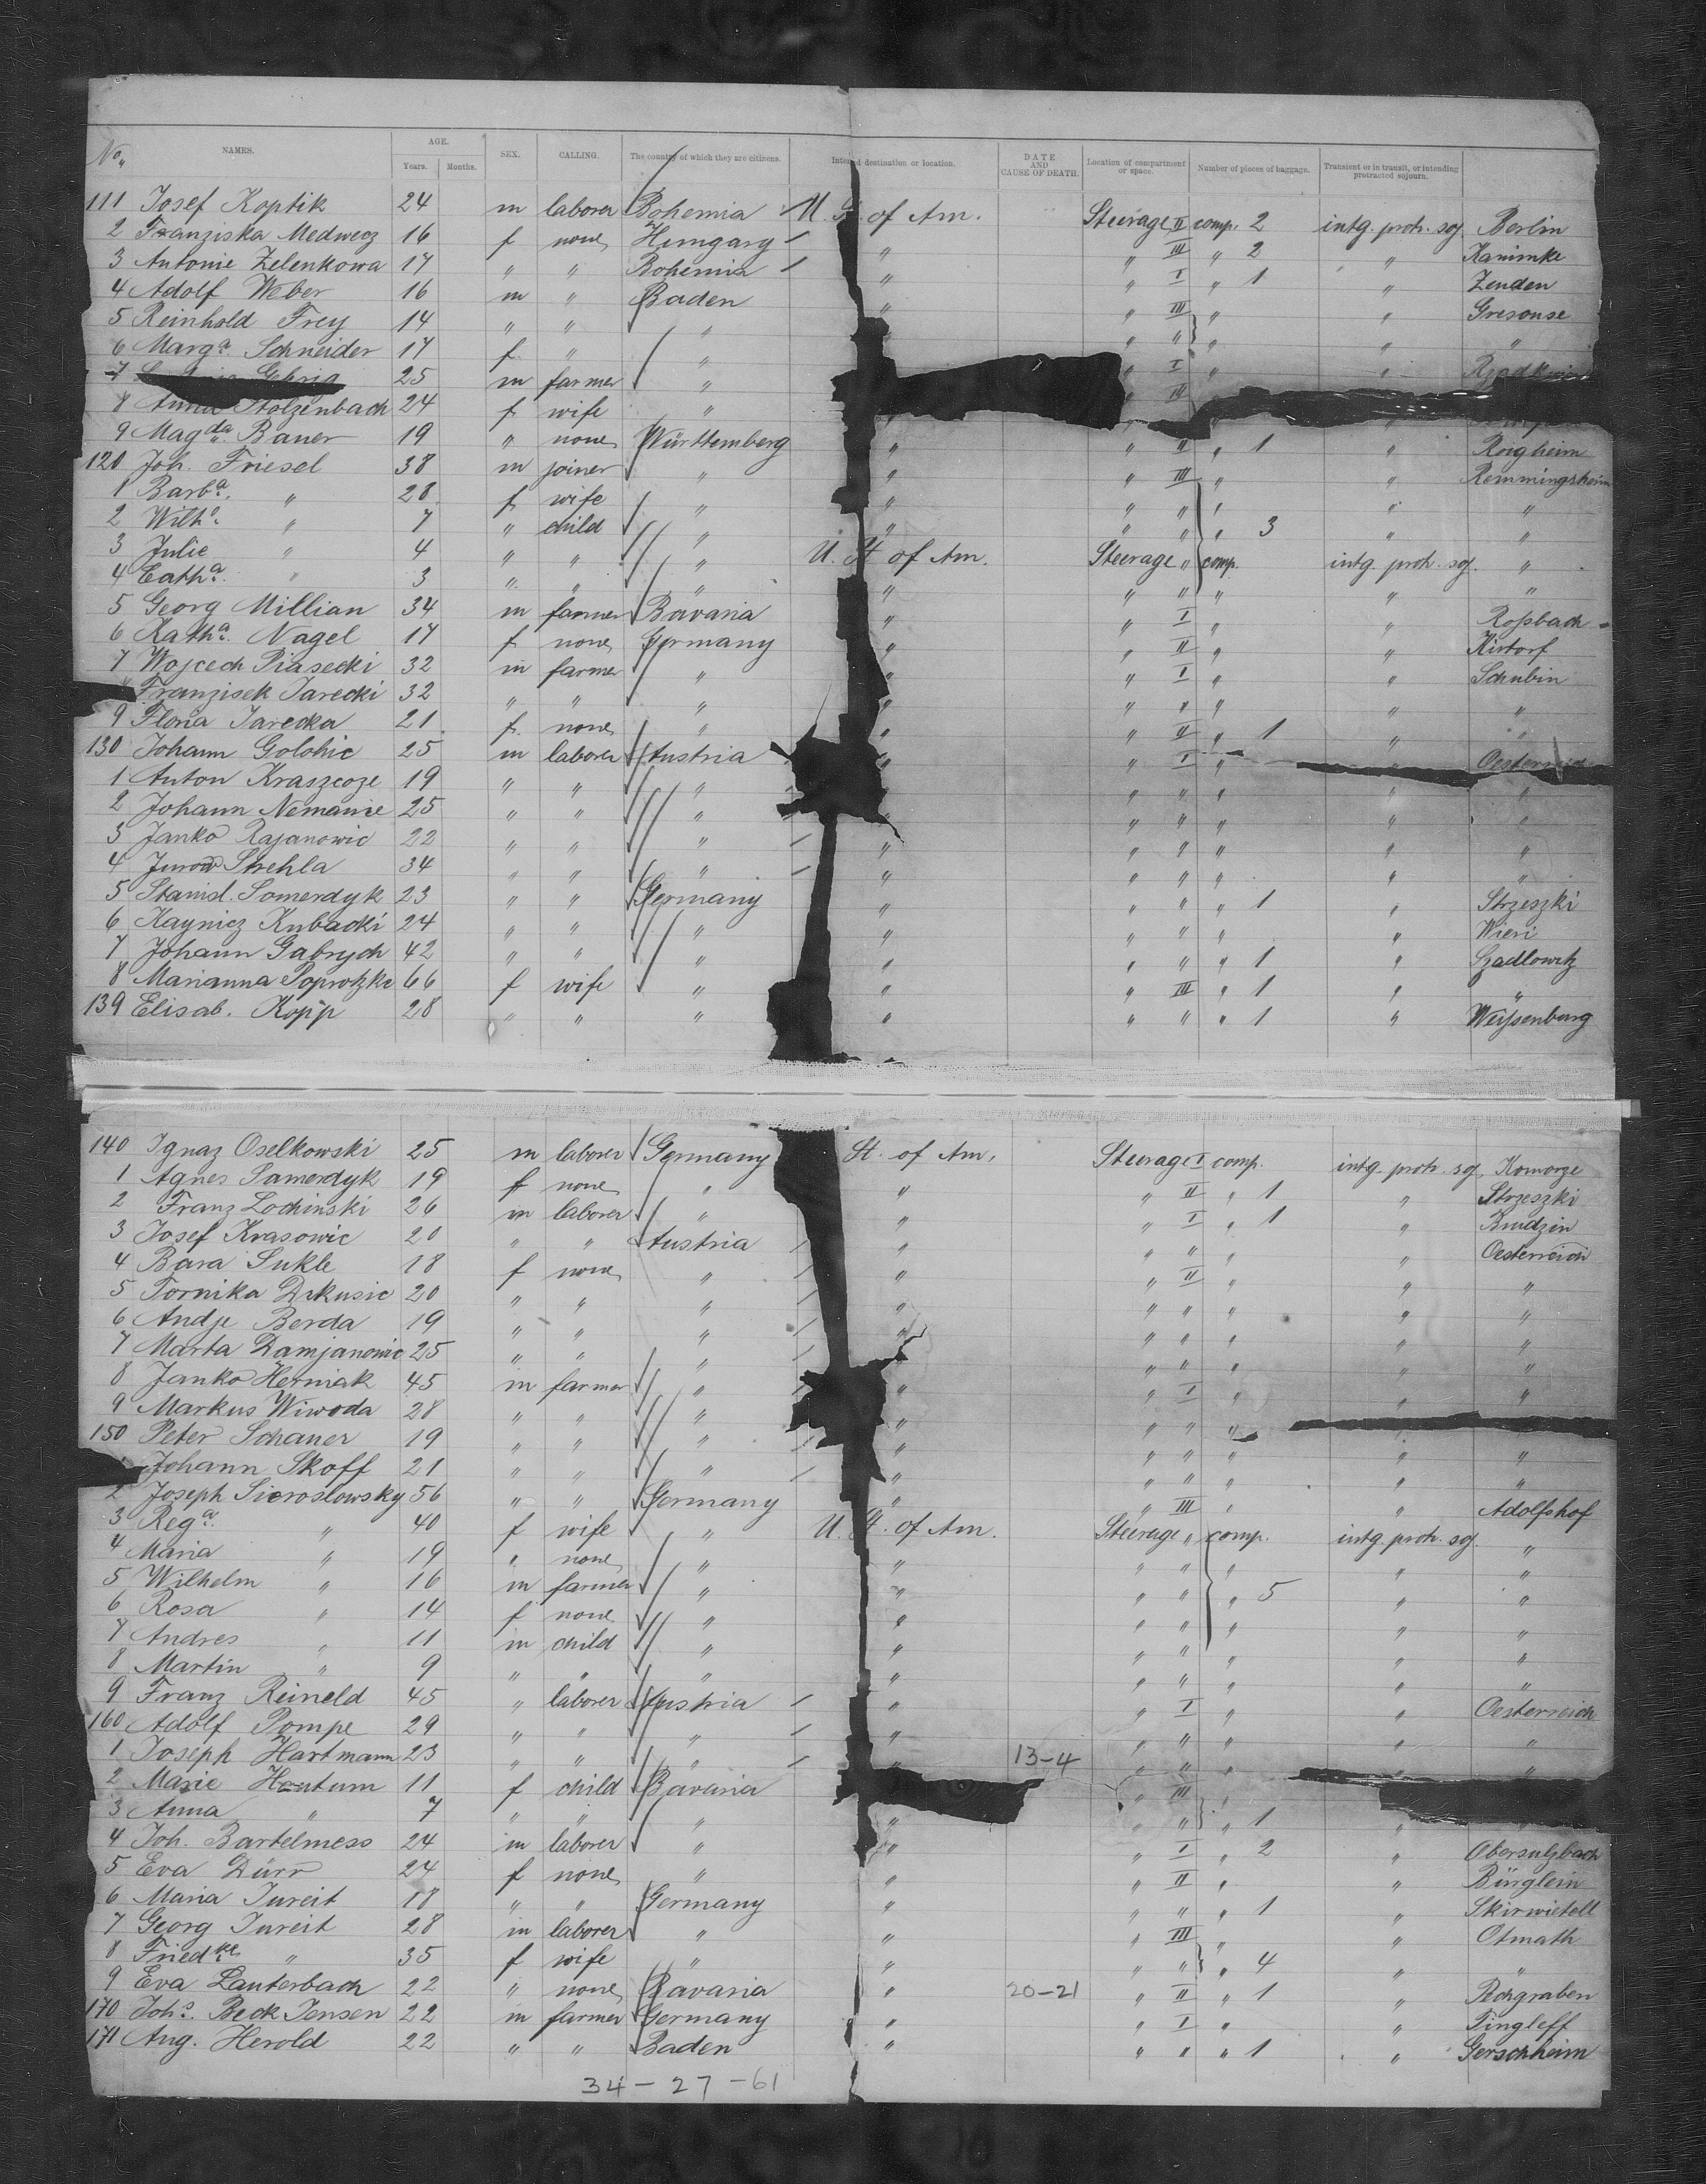 No. NAMES. AGE. Years. Months. SEX. CALLING. The country of which they are citizens. Intended destination or location. DATE AND CAUSE OF DEATH. Location of compartment or space. Number of pieces of baggage. Transient or in transit, or intending protracted sojourn.
111 Josef Koptik 24 m laborer Bohemia U. St. of Am. Steerage II comp. 2 intg. protr. soj. Berlin
2 Franziska Medwecz 16 f none Hungary " " III " 2 " Kanimke
3 Antonie Zelenkowa 17 " " Bohemia " " I " 1 " Zenden
4 Adolf Weber 16 m " Baden " " III " " Gresonse
5 Reinhold Frey 14 " " " " " " " "
6 Marg.a Schneider 17 f " " " I " "
7 Gehrig 25 m farmer " " III
8 Anna Stolzenbach 24 f wife " "
9 Magda. Bauer 19 " none Württemberg " " II " 1 " Roigheim
120 Joh. Friesel 38 m joiner " " " III " " Remmingsheim
1 Barb.a " 28 f wife " " " " " " "
2 Wilh.e " 7 " child " " " " " 3 " "
3 Julie " 4 " " " U. St of Am. Steerage " comp. intg. protr. soj. "
4 Cath.a " 3 " " " " " " " " "
5 Georg Millian 34 m farmer Bavaria " " I " " Roßbach
6 Kath.a Nagel 17 f none Germany " " II " " Kirtorf
7 Wojcech Piasecki 32 m farmer " " " I " " Schubin
Franzisek Jarecki 32 " " " " " " " " "
9 Flona Jarecka 21 f none " " " II " 1 " "
130 Johann Golohic 25 m laborer Austria " " I " " Oesterreich
1 Anton Kraszcoze 19 " " " " " " " "
2 Johann Nemanie 25 " " " " " " " " "
3 Janko Rajanowic 22 " " " " " " " " "
4 Jurow Strehla 34 " " " " " " " " "
5 Stanisl. Somerdyk 23 " " Germany " " " " 1 " Strzeszki
6 Kaynicz Kubacki 24 " " " " " " " " Wieri
7 Johann Gabrych 42 " " " " " " " 1 " Szadlowitz
8 Marianna Poprotzka 66 f wife " " " III " 1 " "
139 Elisab. Kopp 28 " " " " " " " 1 " Weißenburg
140 Ignaz Oselkowski 25 m laborer Germany St. of Am. Steerage I comp. intg. protr. soj. Komorze
1 Agnes Samerdyk 19 f none " " " II " 1 " Strzeszki
2 Franz Lochinski 26 m laborer " " " I " 1 " Brudzin
3 Josef Krasowic 20 " " Austria " " " " " Oesterreich
4 Bara Sukle 18 f none " " " II " " "
5 Tornika Drkusic 20 " " " " " " " " "
6 Andje Berda 19 " " " " " " " " "
7 Marta Damjanowic 25 " " " " " " " "
8 Janko Herniak 45 m farmer " " " I " " "
9 Markus Wiwoda 28 " " " " " " "
150 Peter Schauer 19 " " " " " " " " "
Johann Skoff 21 " " " " " " " " "
2 Joseph Sieroslowsky 56 " " Germany " " III " " Adolfshof
3 Reg.a " 40 f wife " U. St. of Am. Steerage " comp. intg. protr. soj. "
4 Maria " 19 " none " " " " " " "
5 Wilhelm " 16 m farmer " " " " " 5 " "
6 Rosa " 14 f none " " " " " " "
7 Andres " 11 m child " " " " " " "
8 Martin " 9 " " " " " " " " "
9 Franz Reineld 45 " laborer Austria " " I " " Oesterreich
160 Adolf Pompe 29 " " " " " " " " "
1 Joseph Hartmann 23 " " " " 13-4 " " " "
2 Marie Hautum 11 f child Bavaria " III "
3 Anna " 7 " " " " " " 1 "
4 Joh. Bartelmess 24 m laborer " " " I " 2 " Obersulzbach
5 Eva Dürr 24 f none " " " II " " Bürglein
6 Maria Jureit 18 " " Germany " " " " 1 " Skirwietell
7 Georg Jureit 28 m laborer " " " III " " Otmath
8 Fried.ke " 35 f wife " " " " " 4 " "
9 Eva Lauterbach 22 " none Bavaria " 20-21 " II " 1 " Pechgraben
170 Joh.s Beck Jensen 22 m farmer Germany " " I " " Tingleff
171 Aug. Herold 22 " " Baden " " " " 1 " Gerschheim
34-27-61